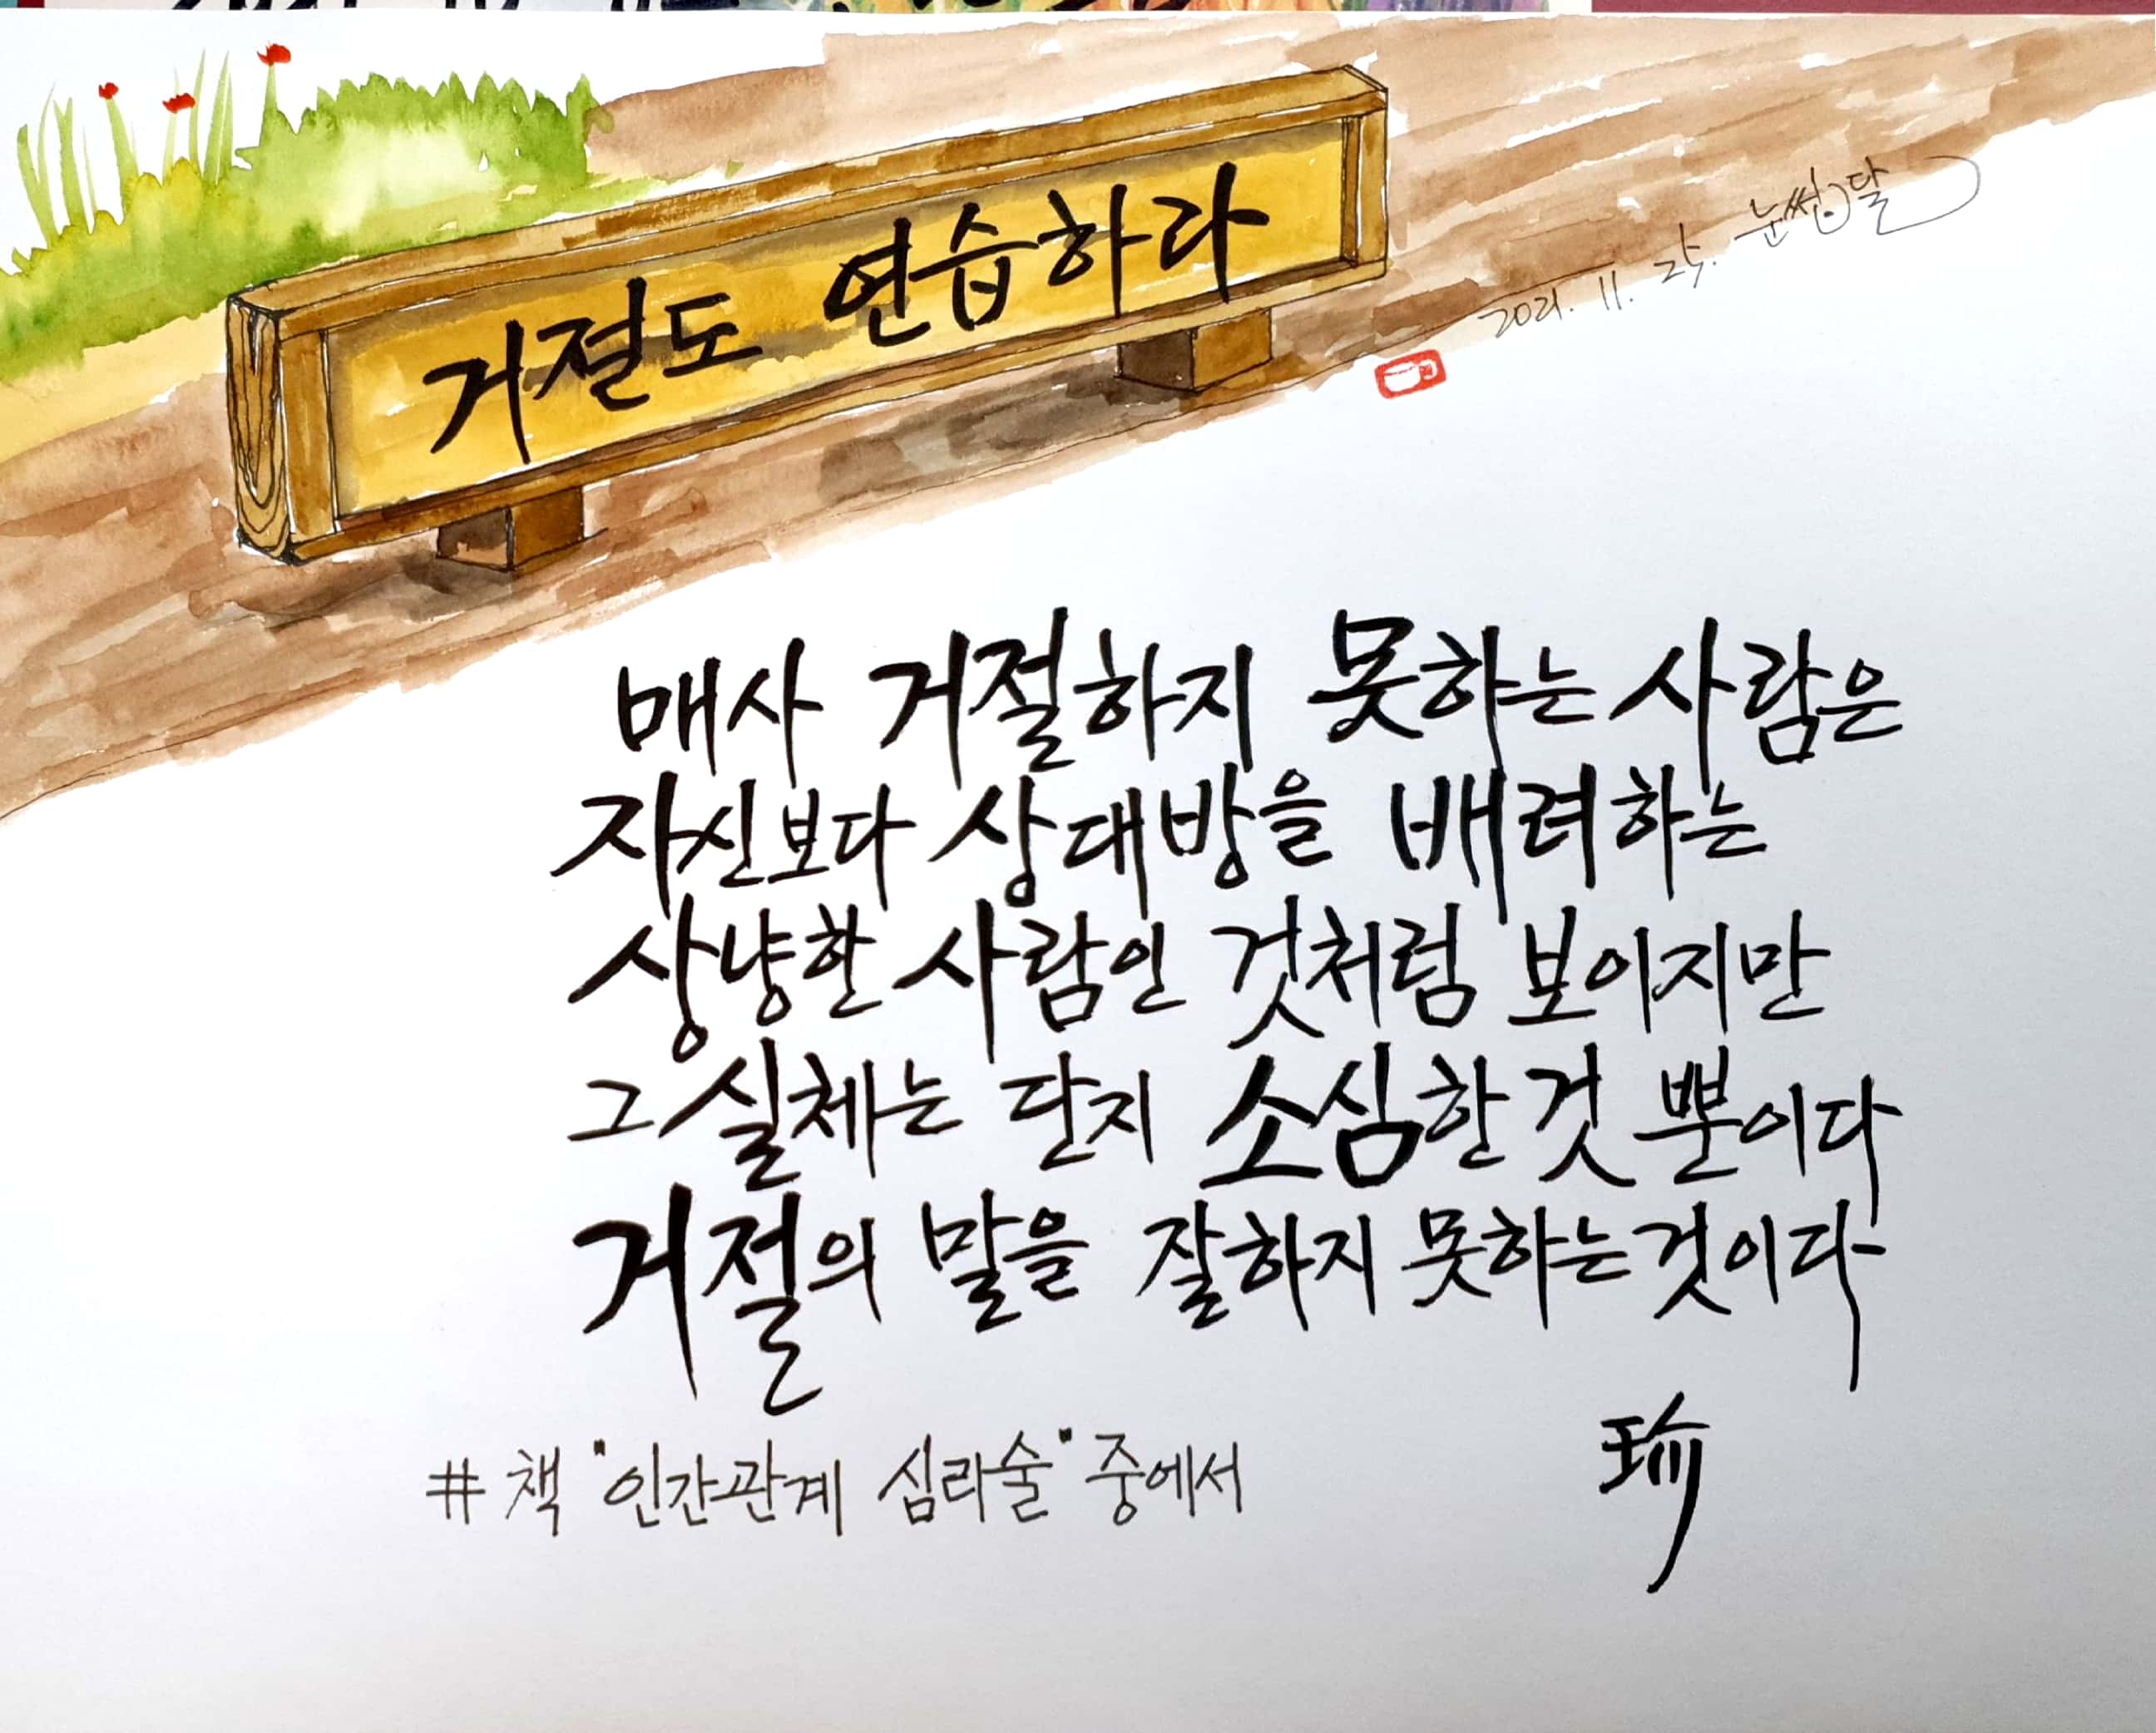 거절도 연습하라
2021. 11. 눈썹달
매사 거절하지 못하는 사람은
자신보다 상대방을 배려하는
상냥한 사람인 것처럼 보이지만
그 실체는 단지 소심한 것 뿐이다
거절의 말을 잘하지 못하는 것이다
# 책 "인간관계 심리술" 중에서
瑜